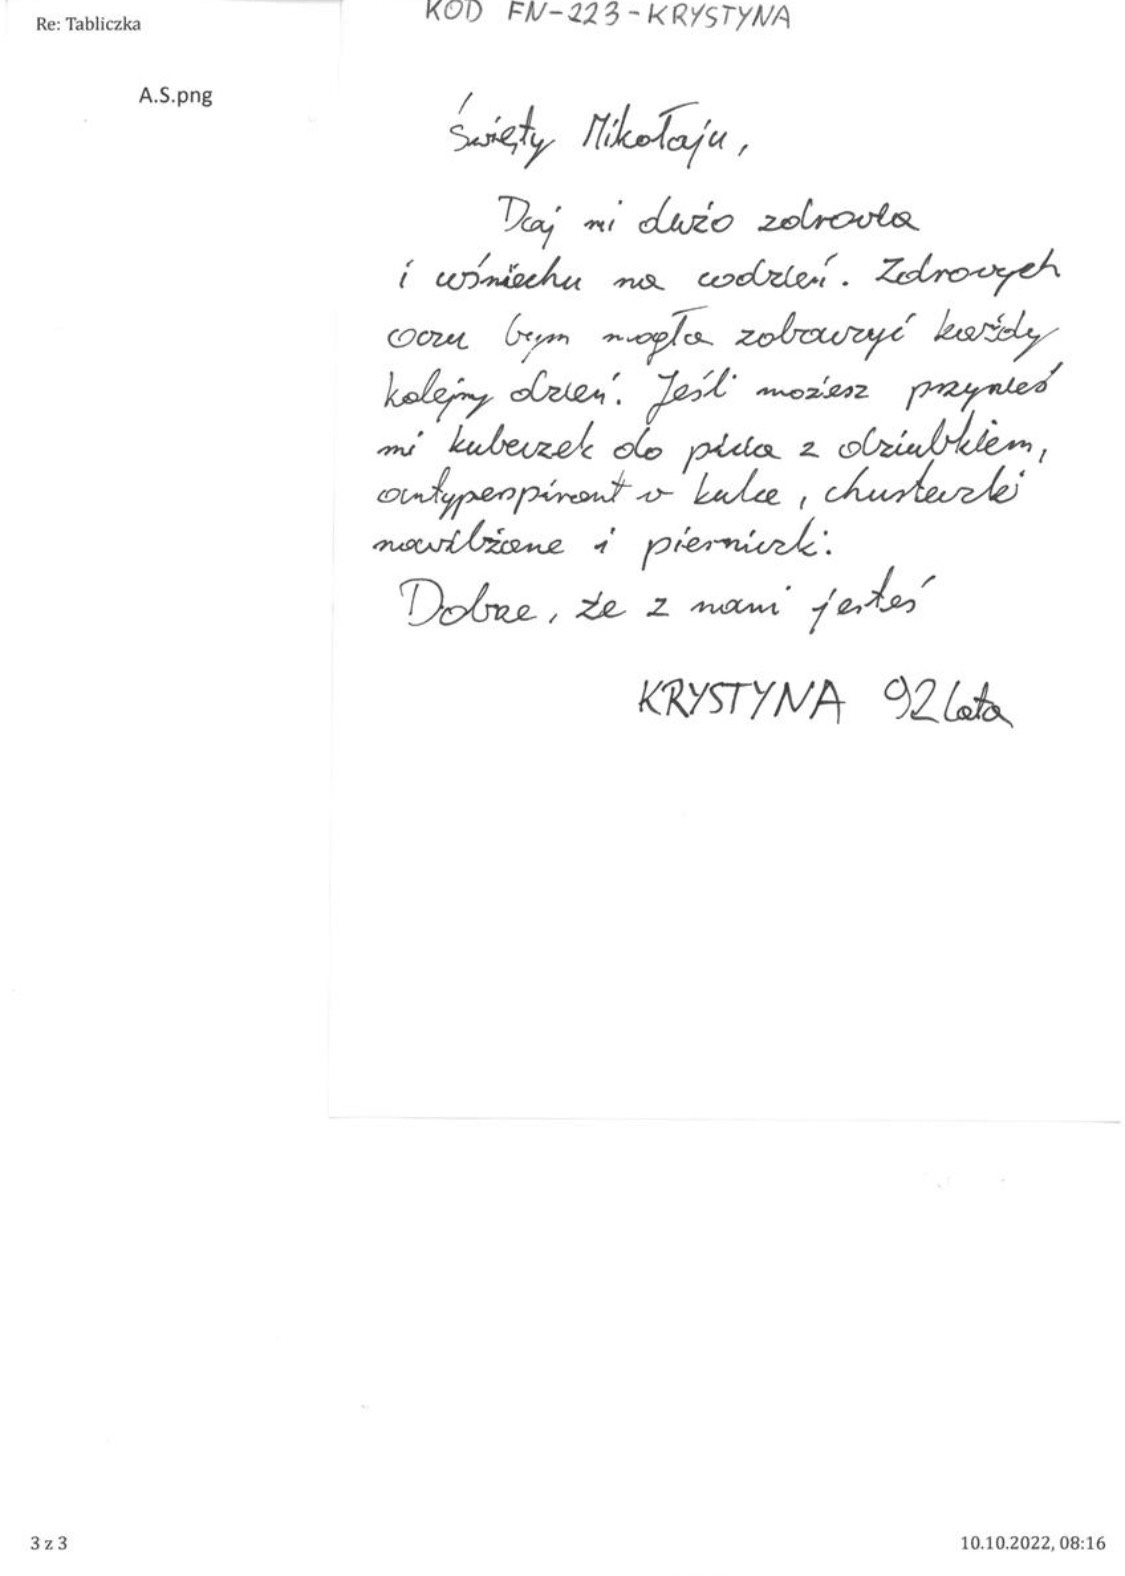 Re: Tabliczka
KOD FN-223-KRYSTYNA
A.S.png
Święty Mikołaju,
Daj mi dużo zdrowia
i uśmiechu na codzień. Zdrowych
oczu bym mogła zobaczyć każdy
kolejny dzień. Jeśli możesz przynieś
mi kubeczek do picia z dziubkiem,
antyperspirant w kulce, chusteczki
nawilżane i pierniczki.
Dobrze, że z nami jesteś
KRYSTYNA 92 lata
3 z 3
10.10.2022, 08:16